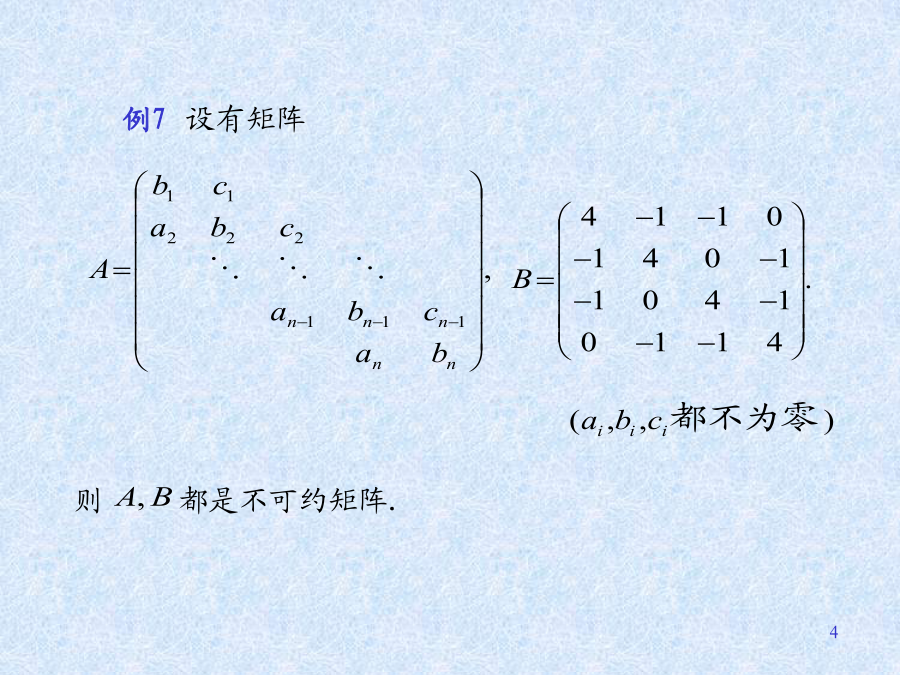 例7 设有矩阵
A= ( b₁ c₁
a₂ b₂ c₂
⋱ ⋱ ⋱
aₙ₋₁ bₙ₋₁ cₙ₋₁
aₙ bₙ ) ,
B= ( 4 −1 −1 0
−1 4 0 −1
−1 0 4 −1
0 −1 −1 4 ) .
(aᵢ,bᵢ,cᵢ都不为零)
则 A, B 都是不可约矩阵.
4